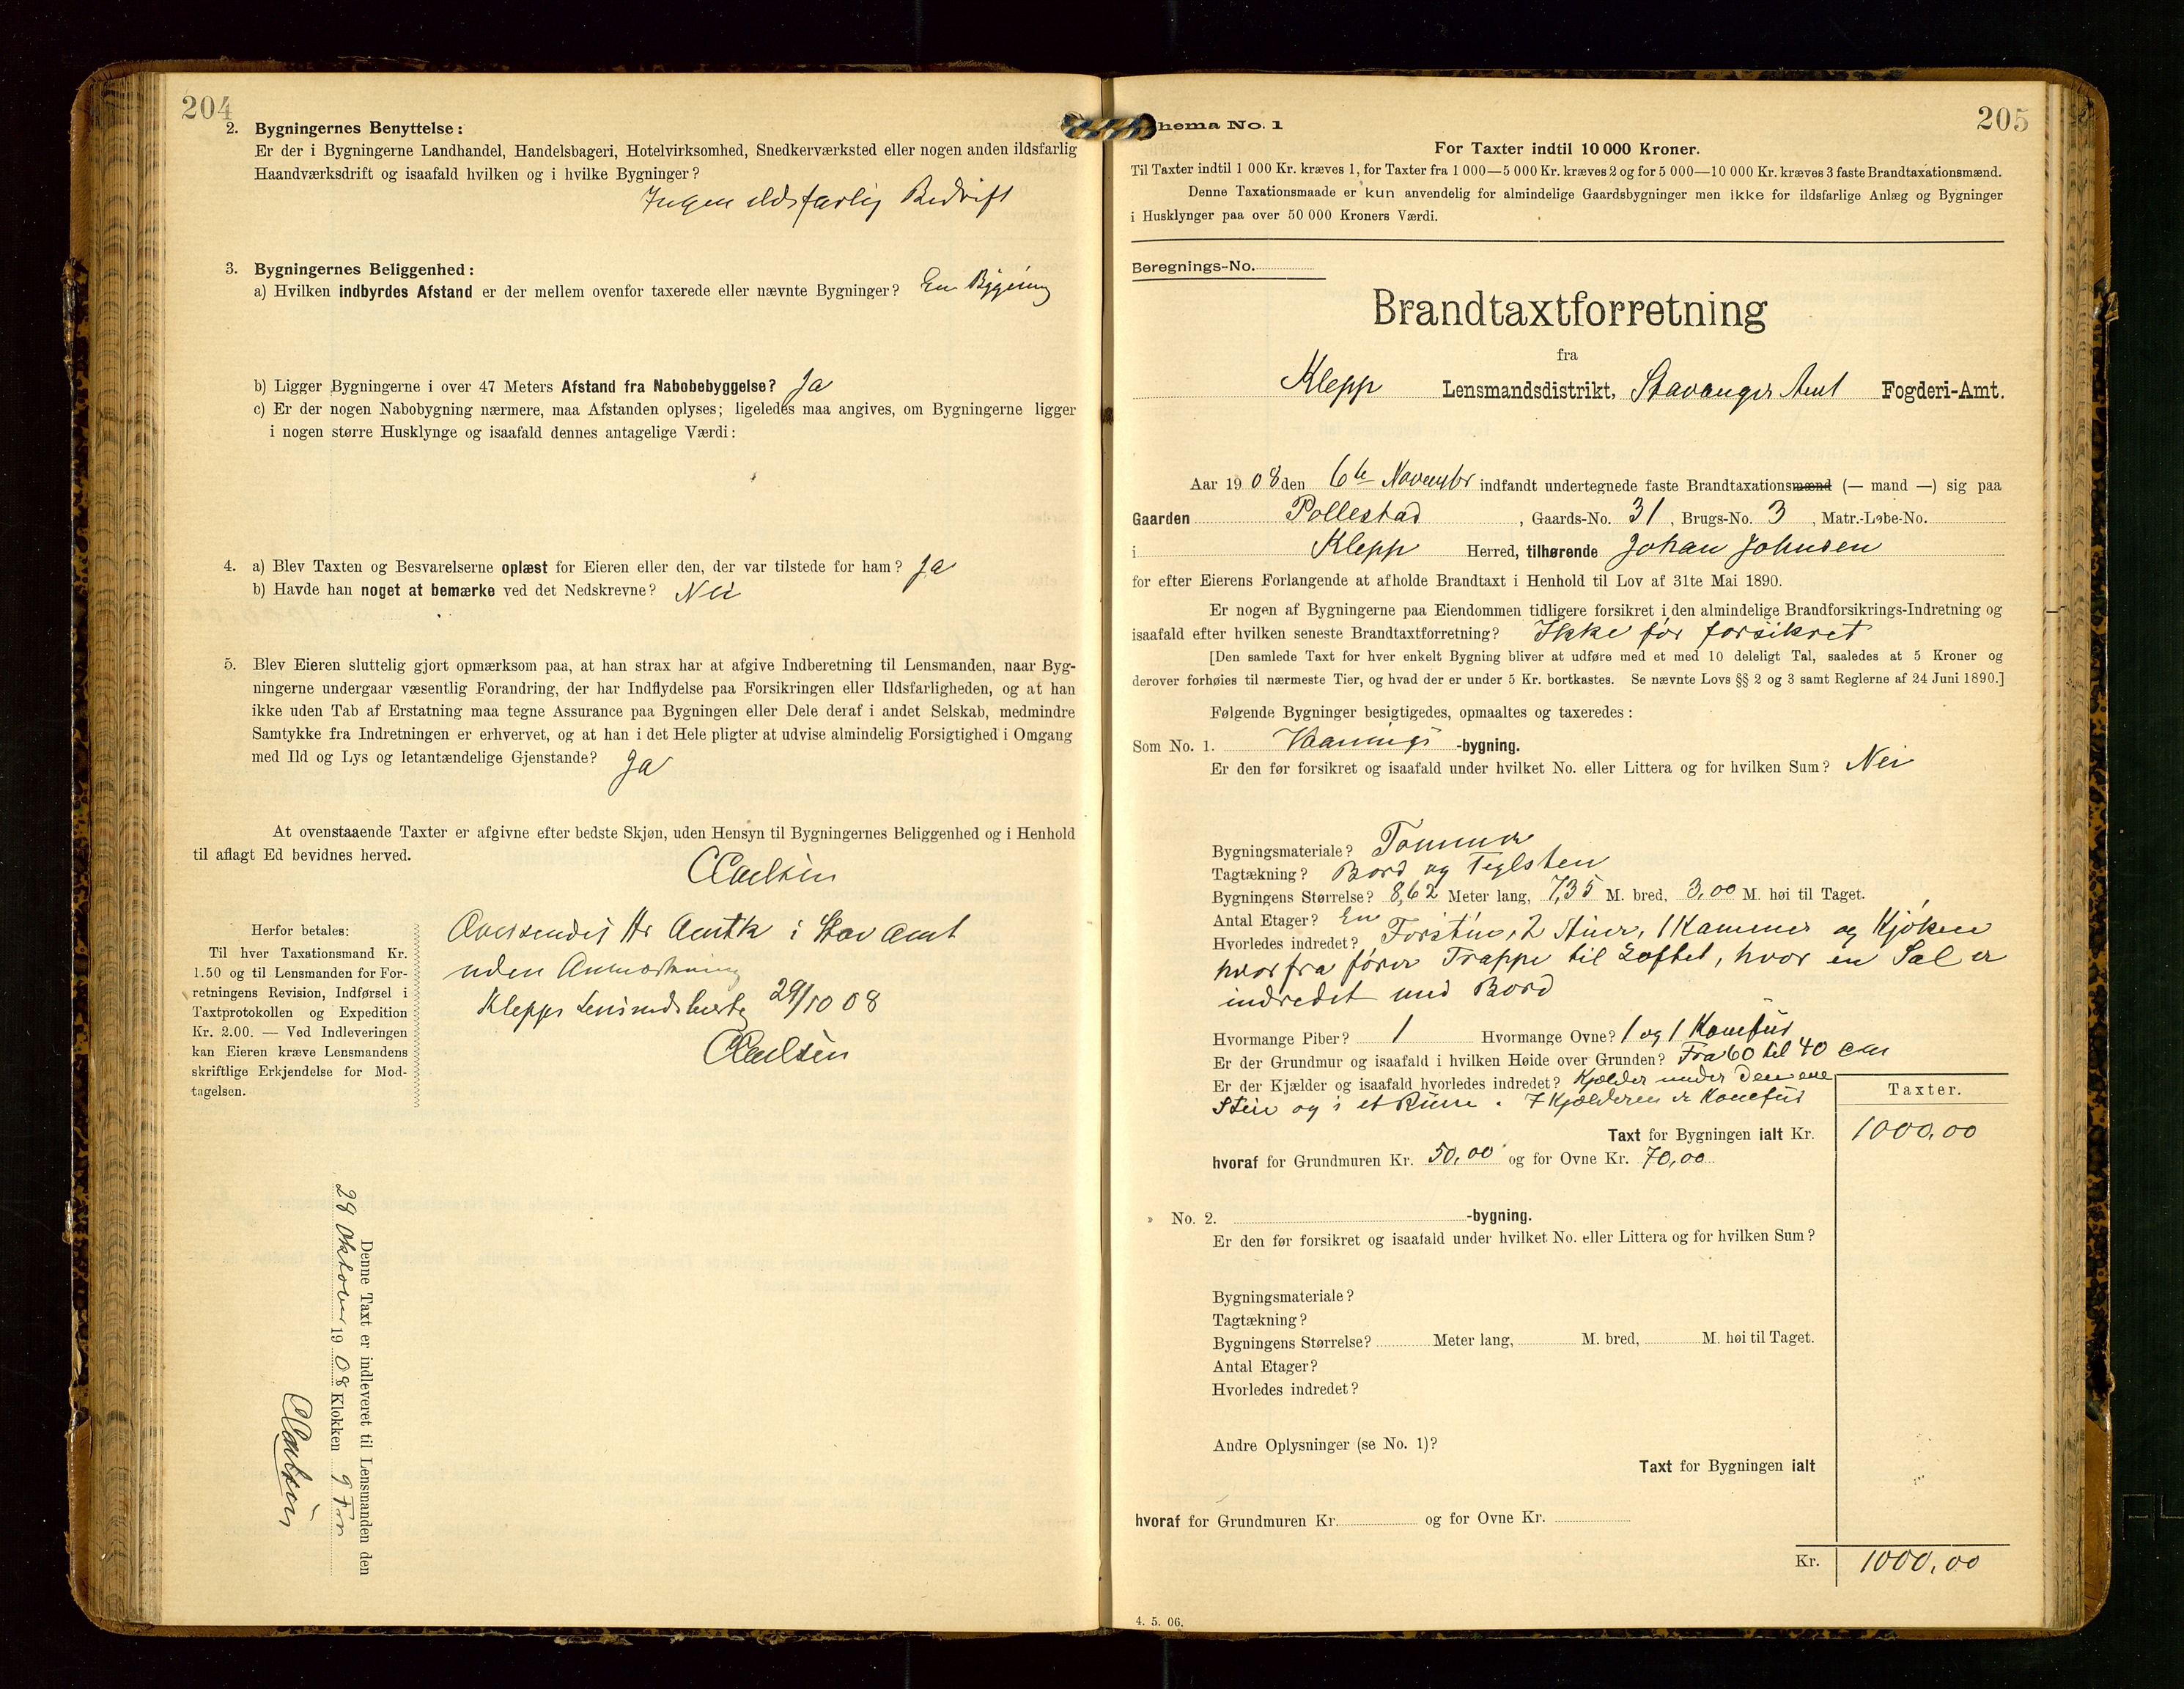 204
2. Bygningernes Benyttelse:
Er der i Bygningerne Landhandel, Handelsbageri, Hotelvirksomhed, Snedkerværksted eller nogen anden ildsfarlig
Haandværksdrift og isaafald hvilken og i hvilke Bygninger?
Ingen ildsfarlig Bedrift
3. Bygningernes Beliggenhed:
a) Hvilken indbyrdes Afstand er der mellem ovenfor taxerede eller nævnte Bygninger? En Bygning
b) Ligger Bygningerne i over 47 Meters Afstand fra Nabobebyggelse? Ja
c) Er der nogen Nabobygning nærmere, maa Afstanden oplyses; ligeledes maa angives, om Bygningerne ligger
i nogen større Husklynge og isaafald dennes antagelige Værdi:
4. a) Blev Taxten og Besvarelserne oplæst for Eieren eller den, der var tilstede for ham? Ja
b) Havde han noget at bemærke ved det Nedskrevne? Nei
5. Blev Eieren sluttelig gjort opmærksom paa, at han strax har at afgive Indberetning til Lensmanden, naar Byg-
ningerne undergaar væsentlig Forandring, der har Indflydelse paa Forsikringen eller Ildsfarligheden, og at han
ikke uden Tab af Erstatning maa tegne Assurance paa Bygningen eller Dele deraf i andet Selskab, medmindre
Samtykke fra Indretningen er erhvervet, og at han i det Hele pligter at udvise almindelig Forsigtighed i Omgang
med Ild og Lys og letantændelige Gjenstande? Ja
At ovenstaaende Taxter er afgivne efter bedste Skjøn, uden Hensyn til Bygningernes Beliggenhed og i Henhold
til aflagt Ed bevidnes herved.
Herfor betales:
Til hver Taxationsmand Kr.
1.50 og til Lensmanden for For-
retningens Revision, Indførsel i
Taxtprotokollen og Expedition
Kr. 2.00. — Ved Indleveringen
kan Eieren kræve Lensmandens
skriftlige Erkjendelse for Mod-
tagelsen.
Oversendes Hr i Stav Amt
uden Anmærkning
Klepps 29/10 08
Denne Taxt er indleveret til Lensmanden den
28 Oktober 1908 Klokken 9 For
205
hema No. 1
For Taxter indtil 10 000 Kroner.
Til Taxter indtil 1 000 Kr. kræves 1, for Taxter fra 1 000—5 000 Kr. kræves 2 og for 5 000—10 000 Kr. kræves 3 faste Brandtaxationsmænd.
Denne Taxationsmaade er kun anvendelig for almindelige Gaardsbygninger men ikke for ildsfarlige Anlæg og Bygninger
i Husklynger paa over 50 000 Kroners Værdi.
Beregnings-No.
Brandtaxtforretning
fra
Klepp Lensmandsdistrikt, Stavanger Amt Fogderi-Amt.
Aar 1908 den 6te November indfandt undertegnede faste Brandtaxationsmænd (— mand —) sig paa
Gaarden Pollestad, Gaards-No. 31, Brugs-No. 3, Matr.-Løbe-No.
i Klepp Herred, tilhørende Johan Johnsen
for efter Eierens Forlangende at afholde Brandtaxt i Henhold til Lov af 31te Mai 1890.
Er nogen af Bygningerne paa Eiendommen tidligere forsikret i den almindelige Brandforsikrings-Indretning og
isaafald efter hvilken seneste Brandtaxtforretning? Ikke før forsikret
[Den samlede Taxt for hver enkelt Bygning bliver at udføre med et med 10 deleligt Tal, saaledes at 5 Kroner og
derover forhøies til nærmeste Tier, og hvad der er under 5 Kr. bortkastes. Se nævnte Lovs §§ 2 og 3 samt Reglerne af 24 Juni 1890.]
Følgende Bygninger besigtigedes, opmaaltes og taxeredes:
Som No. 1. Vaanings-bygning.
Er den før forsikret og isaafald under hvilket No. eller Littera og for hvilken Sum? Nei
Bygningsmateriale? Tømmer
Tagtækning? Bord og Teglsten
Bygningens Størrelse? 8,62 Meter lang, 7,35 M. bred, 3,00 M. høi til Taget.
Antal Etager? En
Hvorledes indredet? Forstue, 2 Stuer, 1 Kammer og Kjøken
hvorfra fører Trappe til Loftet, hvor en Sal er
indredet med Bord
Hvormange Piber? 1 Hvormange Ovne? 1 og 1 Konefur
Er der Grundmur og isaafald i hvilken Høide over Grunden? Fra 60 til 40 cm
Er der Kjælder og isaafald hvorledes indredet? Kjelder under den ene
Stue og i et Rum. I Kjelderen er Konefur
Taxter.
Taxt for Bygningen ialt Kr. 1000,00
hvoraf for Grundmuren Kr. 50,00 og for Ovne Kr. 70,00
» No. 2. -bygning.
Er den før forsikret og isaafald under hvilket No. eller Littera og for hvilken Sum?
Bygningsmateriale?
Tagtækning?
Bygningens Størrelse? Meter lang, M. bred, M. høi til Taget.
Antal Etager?
Hvorledes indredet?
Andre Oplysninger (se No. 1)?
Taxt for Bygningen ialt
hvoraf for Grundmuren Kr. og for Ovne Kr.
Kr. 1000,00
4. 5. 06.